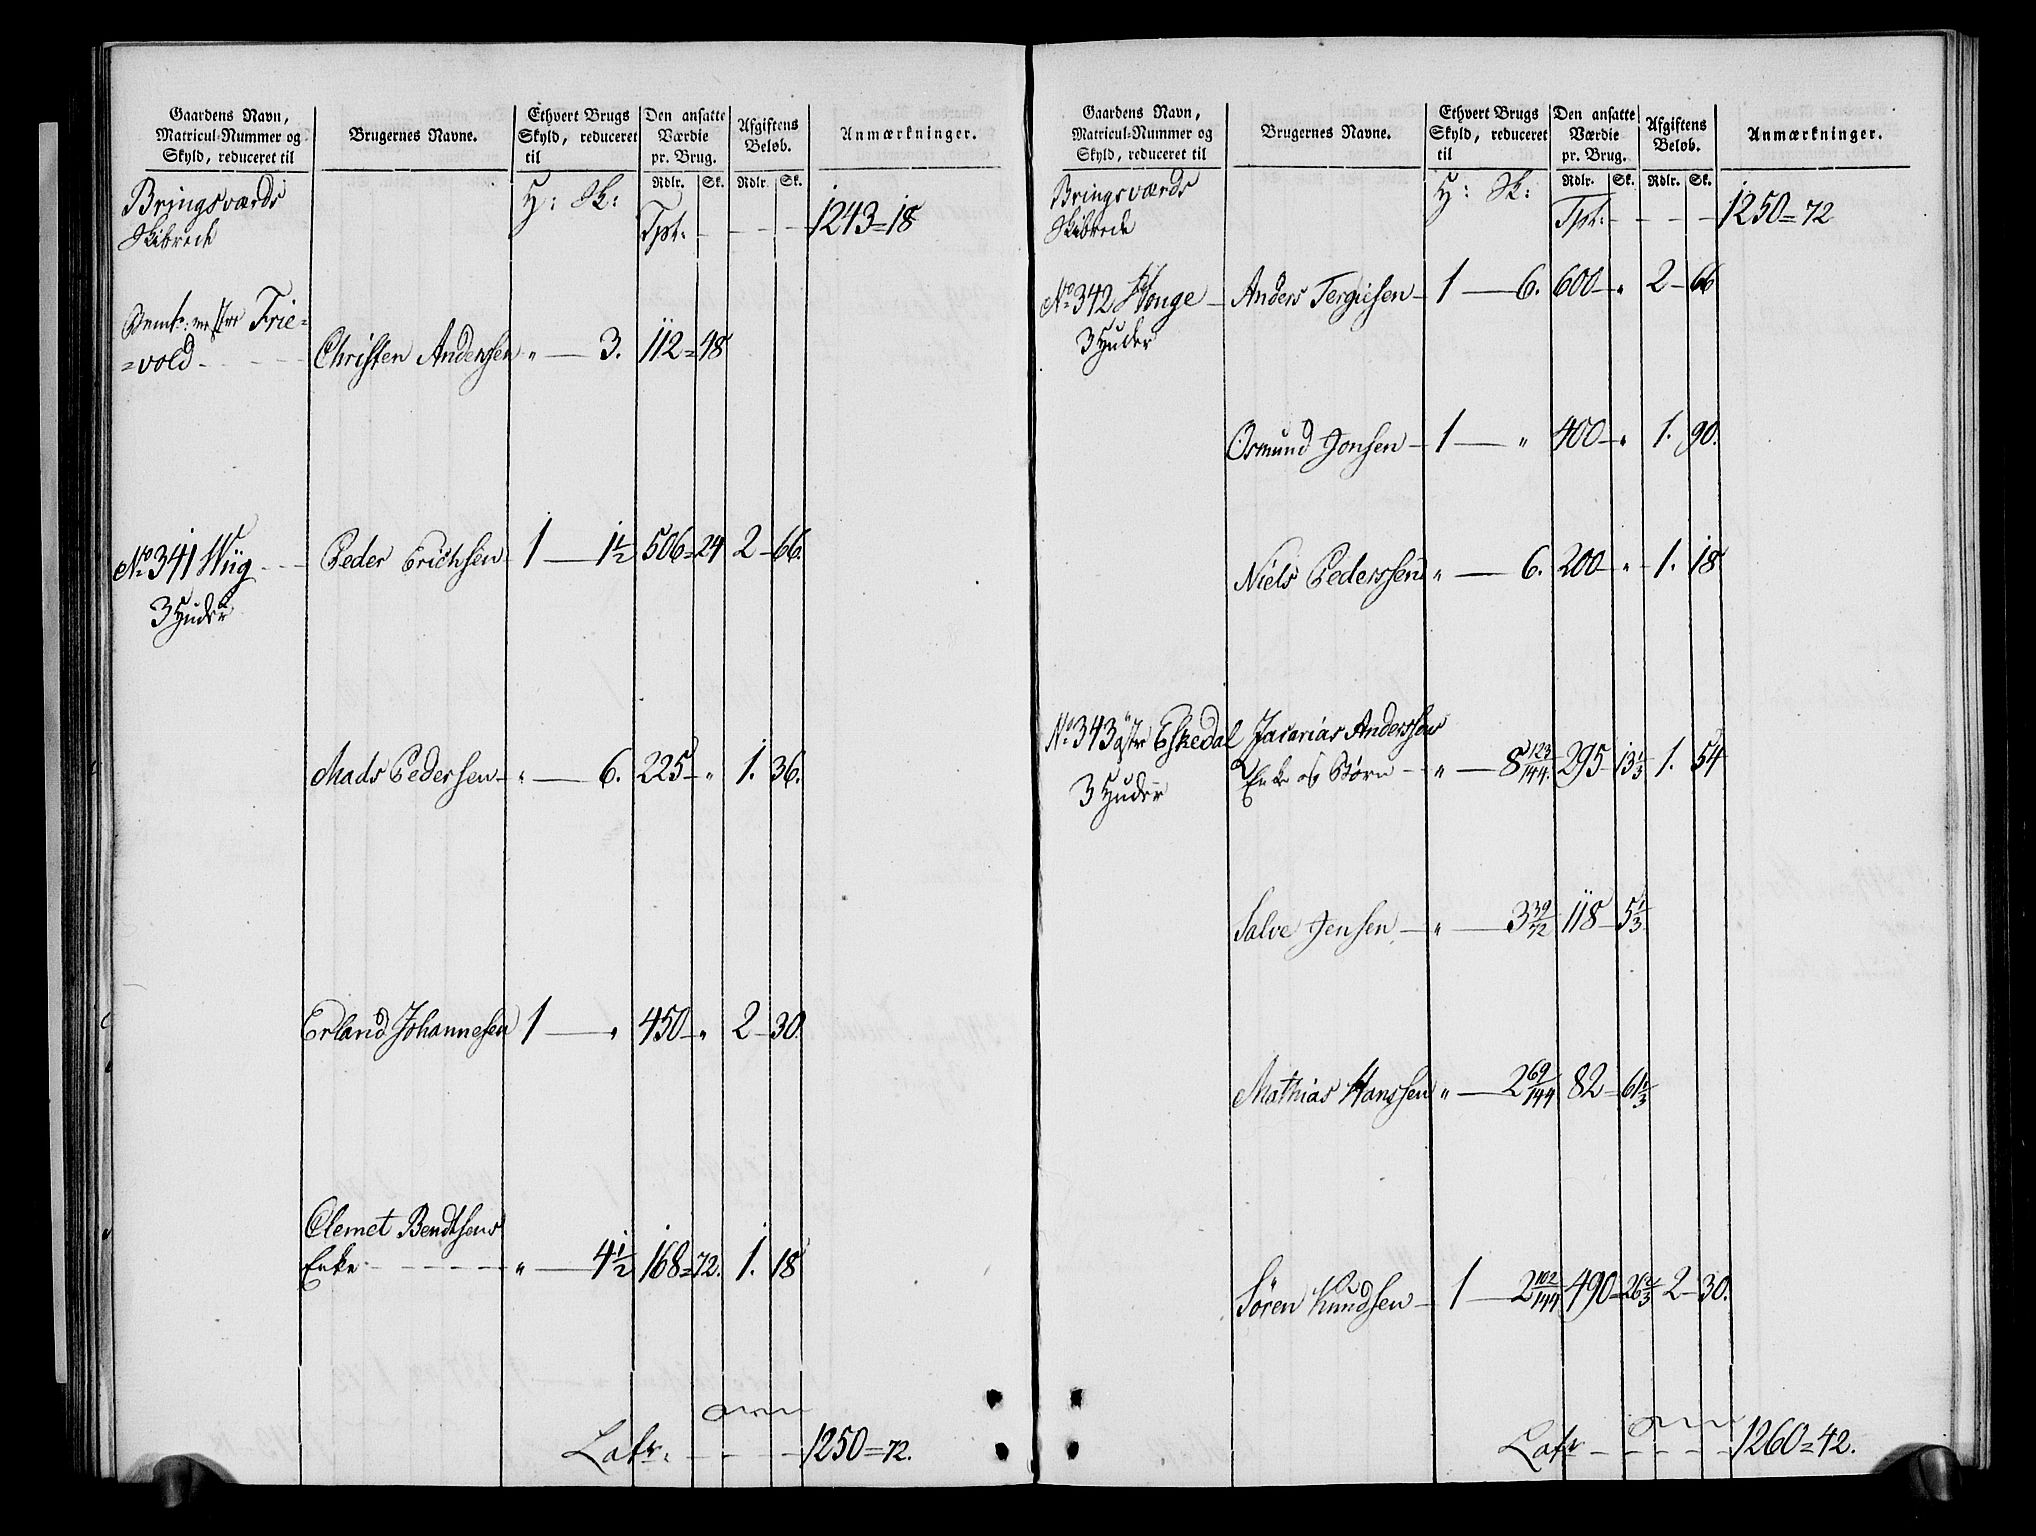 Gaardens Navn, Matricul-Nummer og Skyld, reduceret til | Brugernes Navne. | Ethvert Brugs Skyld, reduceret til | Den ansatte Værdie pr. Brug. Rdlr. Sk. | Afgiftens Beløb. Rdlr. Sk. | Anmærkninger.
Bringsværds H: Sk:
Skibrede Tpt: - - - - 1243=18
Frie=
=vold - - - Christen Andersen " — 3. 112=48
No 341 Wiig - - Peder Erichsen 1 — 1½ 506=24 2-66.
3 Huder
Mads Pedersen - " — 6. 225-" 1. 36.
Erland Johannesen 1 — " 450-" 2-30.
Clemet Bendtsens
Enke - - - - " — 4½ 168=72. 1. 18
Latr: - - - - 1250=72.
Gaardens Navn, Matricul-Nummer og Skyld, reduceret til | Brugernes Navne. | Ethvert Brugs Skyld, reduceret til | Den ansatte Værdie pr. Brug. Rdlr. Sk. | Afgiftens Beløb. Rdlr. Sk. | Anmærkninger.
Bringsværds H: Sk:
Skibrede Tpt: - - - - 1250=72
No 342 Honge - Anders Tergiesen - 1 — 6. 600-" 2-66
3 Huder
Osmund Jonsen - 1 — " 400-" 1. 90.
Niels Pederssen " — 6. 200-" 1. 18
No 343 østr Eskedal Zacarias Anderssens
Enke og Børn - " — 8 123/144. 295-13⅓ 1. 54
3 Huder
Salve Jensen - " — 3 39/72 118-5⅓
Mathias Hanssen " — 2 69/144 82=61⅓
Søren Knudsen - 1 — 2 102/144 490=26⅔ 2-30.
Latr - - - - 1260=42.